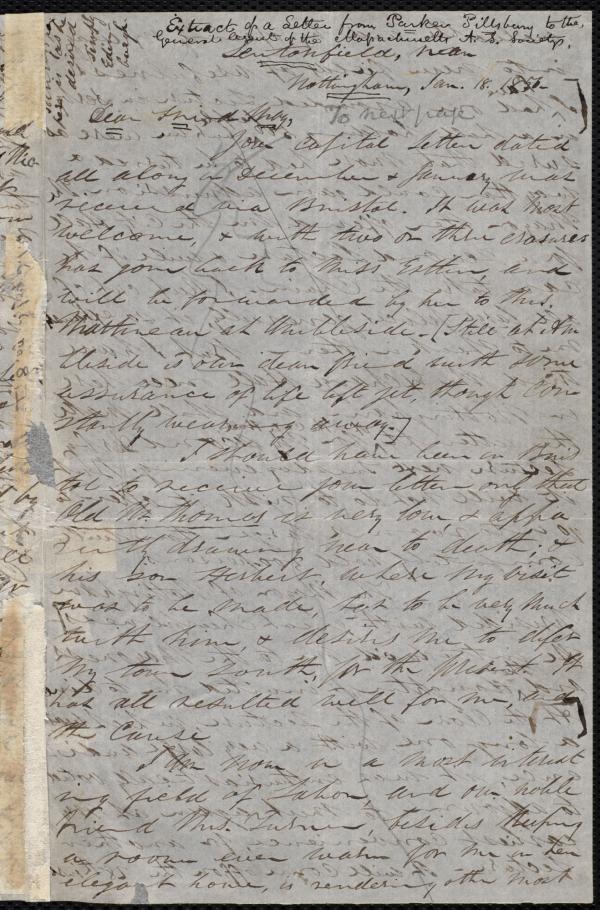 Extract of a Letter from Parker Pillsbury to the
General Agent of the Massachusetts A. S. Society.
Lentonfield, near
Nottingham, Jan. 18, 1856
To next page
Dear Friend May,
Your capital letter dated
all along in December & January was
received via Bristol. It was most
welcome, & with two or three erasures
has gone back to Miss Estlin, and
will be forwarded by her to Mrs.
Martineau at Ambleside. [Still at Am
bleside is our dear friend with some
assurance of life left yet, though con
stantly wearing away.]
I should have been in Bris
tol to receive your letter only that
Old Mr. Thomas is very low, & appa
rently drawing near to death; &
his son Herbert, where my visit
was to be made, has to be very much
with him, & desires me to defer
my tour South, for the present. It
has all resulted well for me, and
the Cause
I am now in a most interest
ing field of labor, and our noble
friend Mrs. Turner, besides keeping
a room ever warm for me in her
elegant home, is rendering other most